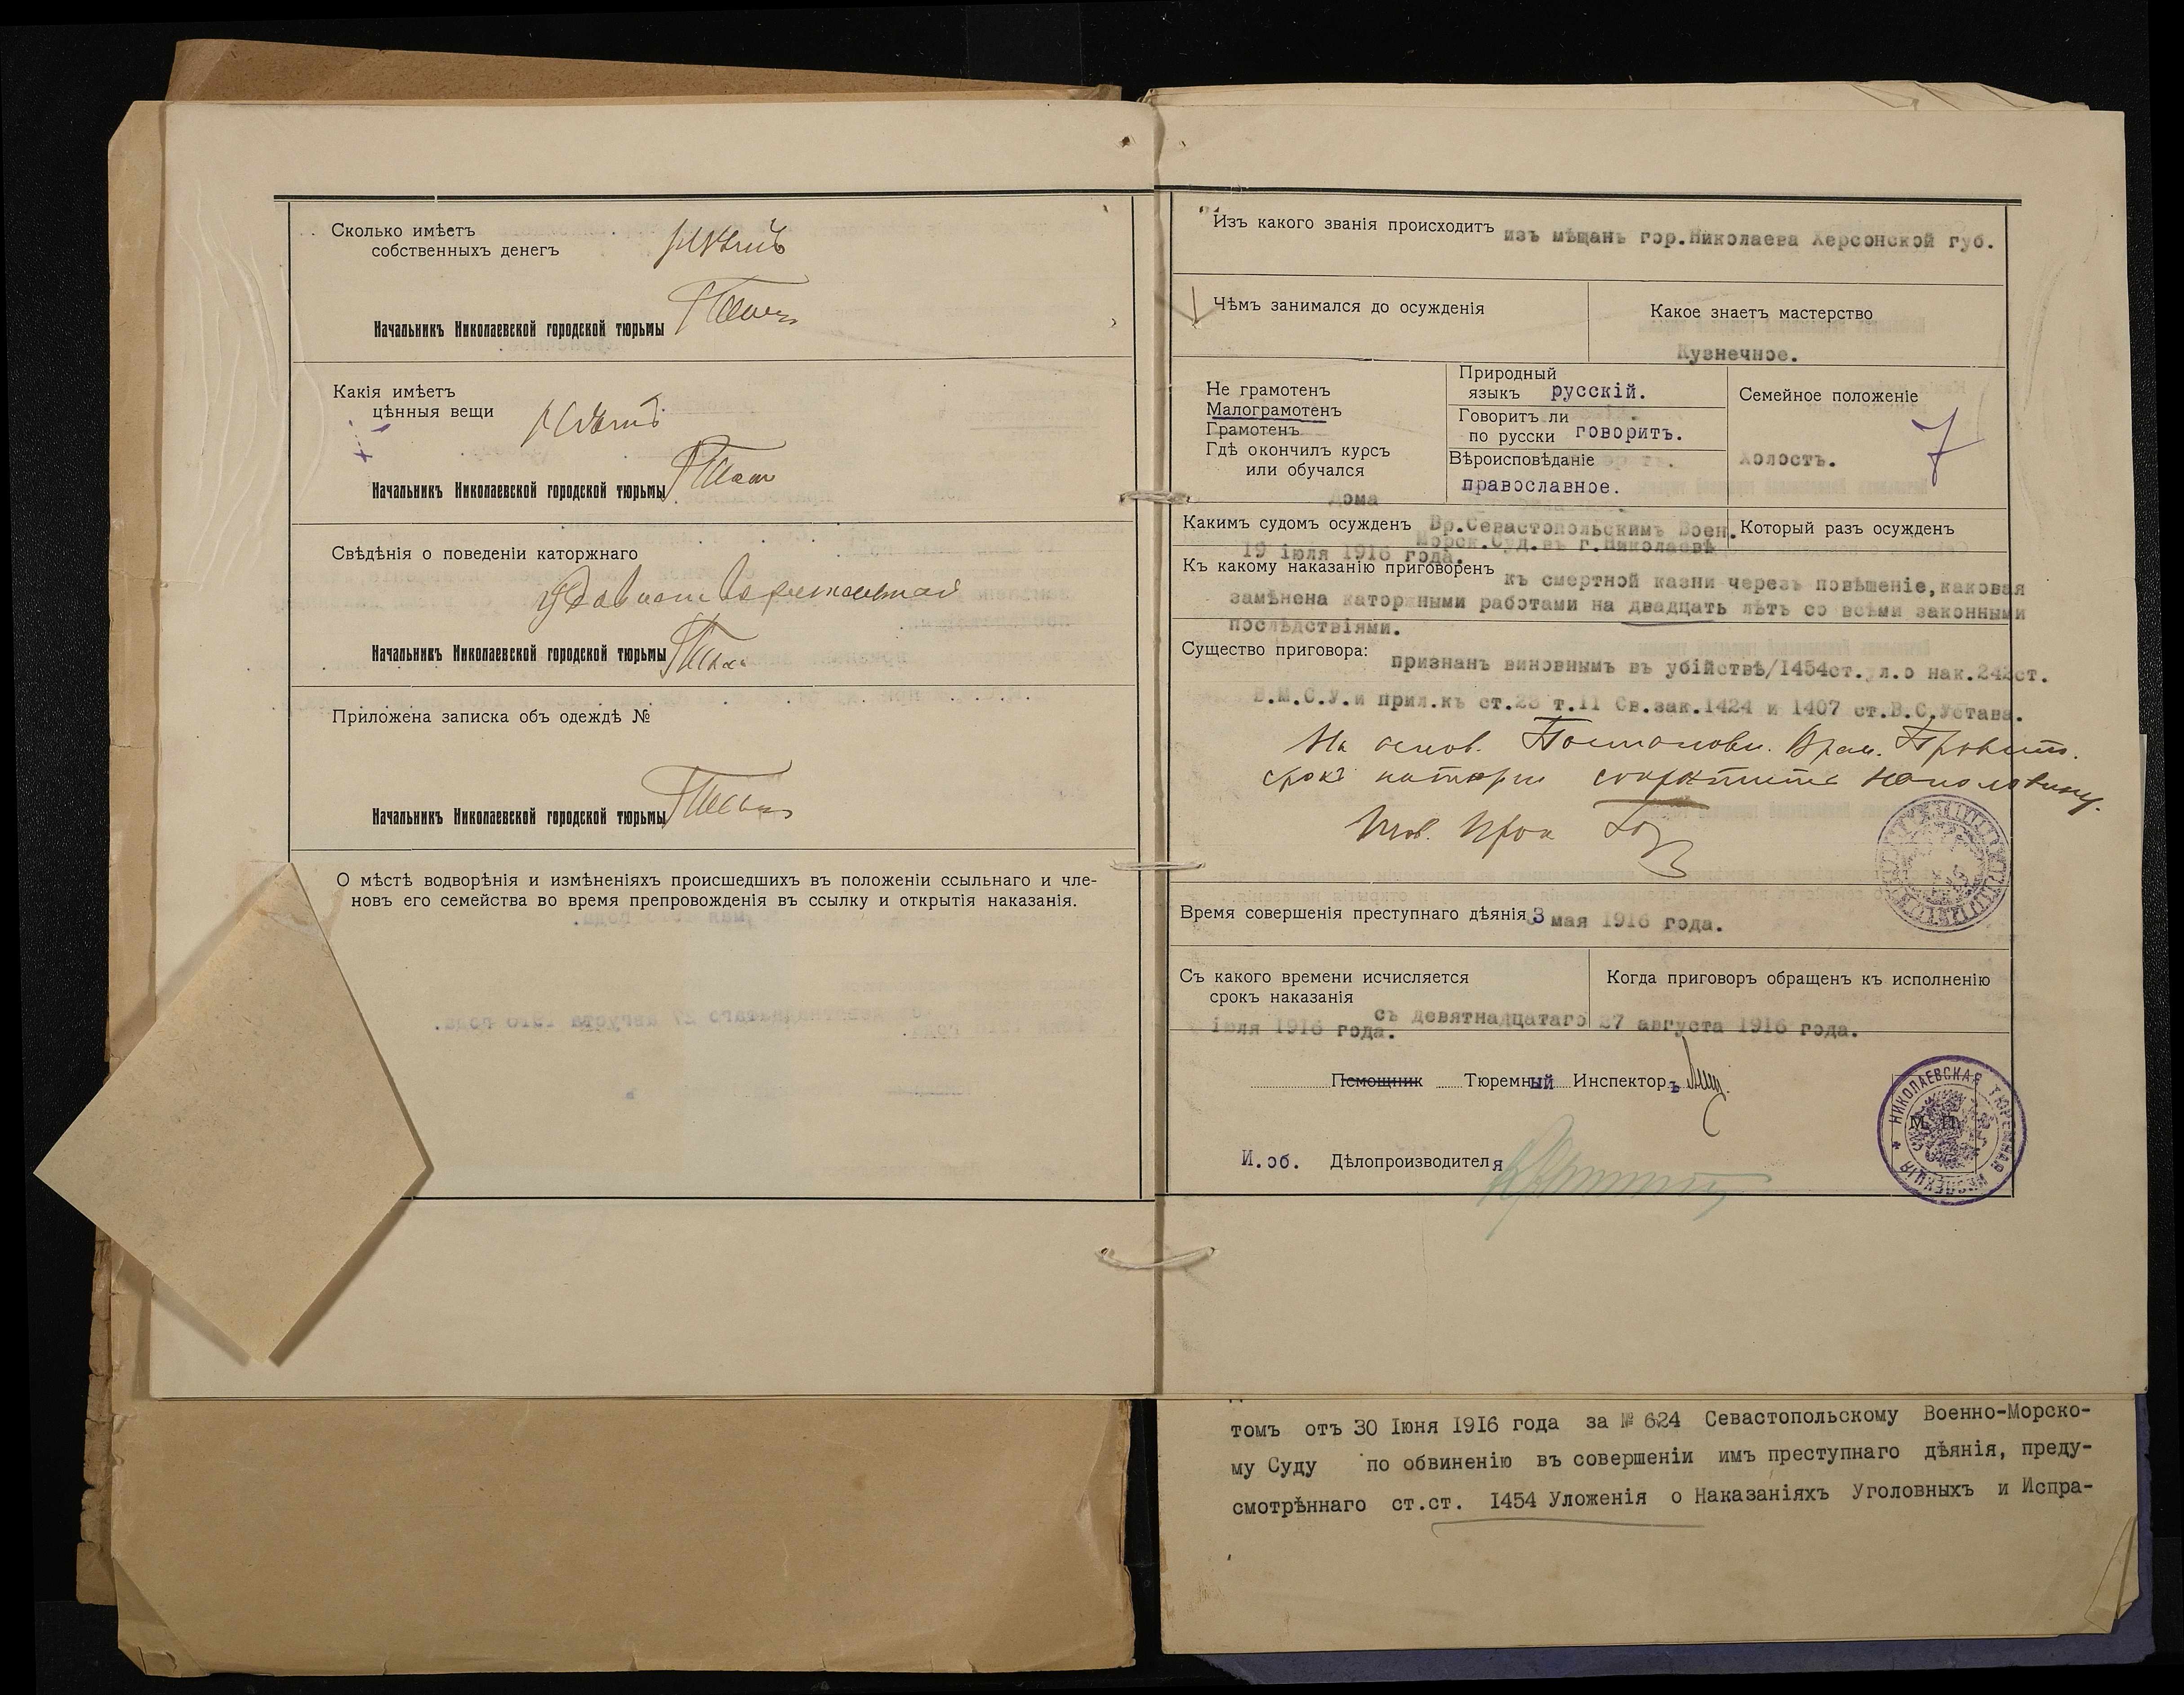 Сколько имѣетъ
собственныхъ денегъ
Нѣтъ
Начальникъ Николаевской городской тюрьмы
Какія имѣетъ
цѣнныя вещи
Нѣтъ
Начальникъ Николаевской городской тюрьмы
Свѣдѣнія о поведеніи каторжнаго
Начальникъ Николаевской городской тюрьмы
Приложена записка объ одеждѣ №
Начальникъ Николаевской городской тюрьмы
О мѣстѣ водворѣнія и измѣненіяхъ происшедшихъ въ положеніи ссыльнаго и чле-
новъ его семейства во время препровожденія въ ссылку и открытія наказанія.
Изъ какого званія происходитъ изъ мѣщанъ гор.Николаева Херсонской губ.
Чѣмъ занимался до осужденія
Какое знаетъ мастерство
Кузнечное.
Не грамотенъ
Малограмотенъ
Грамотенъ
Гдѣ окончилъ курсъ
или обучался
Дома
Природный
языкъ русскій.
Говоритъ ли
по русски говоритъ.
Вѣроисповѣданіе
православное.
Семейное положеніе
7
Холостъ.
Какимъ судомъ осужденъ Вр.Севастопольскимъ Воен.
Морск.Суд.въ г.Николаевѣ
19 іюля 1916 года.
Который разъ осужденъ
Къ какому наказанію приговоренъ къ смертной казни черезъ повѣшеніе,каковая
замѣнена каторжными работами на двадцать лѣтъ со всѣми законными
послѣдствіями.
Существо приговора: признанъ виновнымъ въ убійствѣ/1454ст.ул.о нак.242ст.
В.М.С.У.и прил.къ ст.28 т.11 Св.зак.1424 и 1407 ст.В.С.Устава.
На основ. Постановл. Врем. Правит.
срокъ каторги сокращенъ наполовину.
Тов. Прок
Время совершенія преступнаго дѣянія 3 мая 1916 года.
Съ какого времени исчисляется
срокъ наказанія
съ девятнадцатаго
іюля 1916 года.
Когда приговоръ обращенъ къ исполненію
27 августа 1916 года.
Помощник Тюремный Инспекторъ
М. П.
НИКОЛАЕВСКАЯ ТЮРЕМНАЯ ИНСПЕКЦІЯ
И.об. Дѣлопроизводителя
томъ отъ 30 Іюня 1916 года за № 624 Севастопольскому Военно-Морско-
му Суду по обвиненію въ совершеніи имъ преступнаго дѣянія, преду-
смотрѣннаго ст.ст. 1454 Уложенія о Наказаніяхъ Уголовныхъ и Испра-